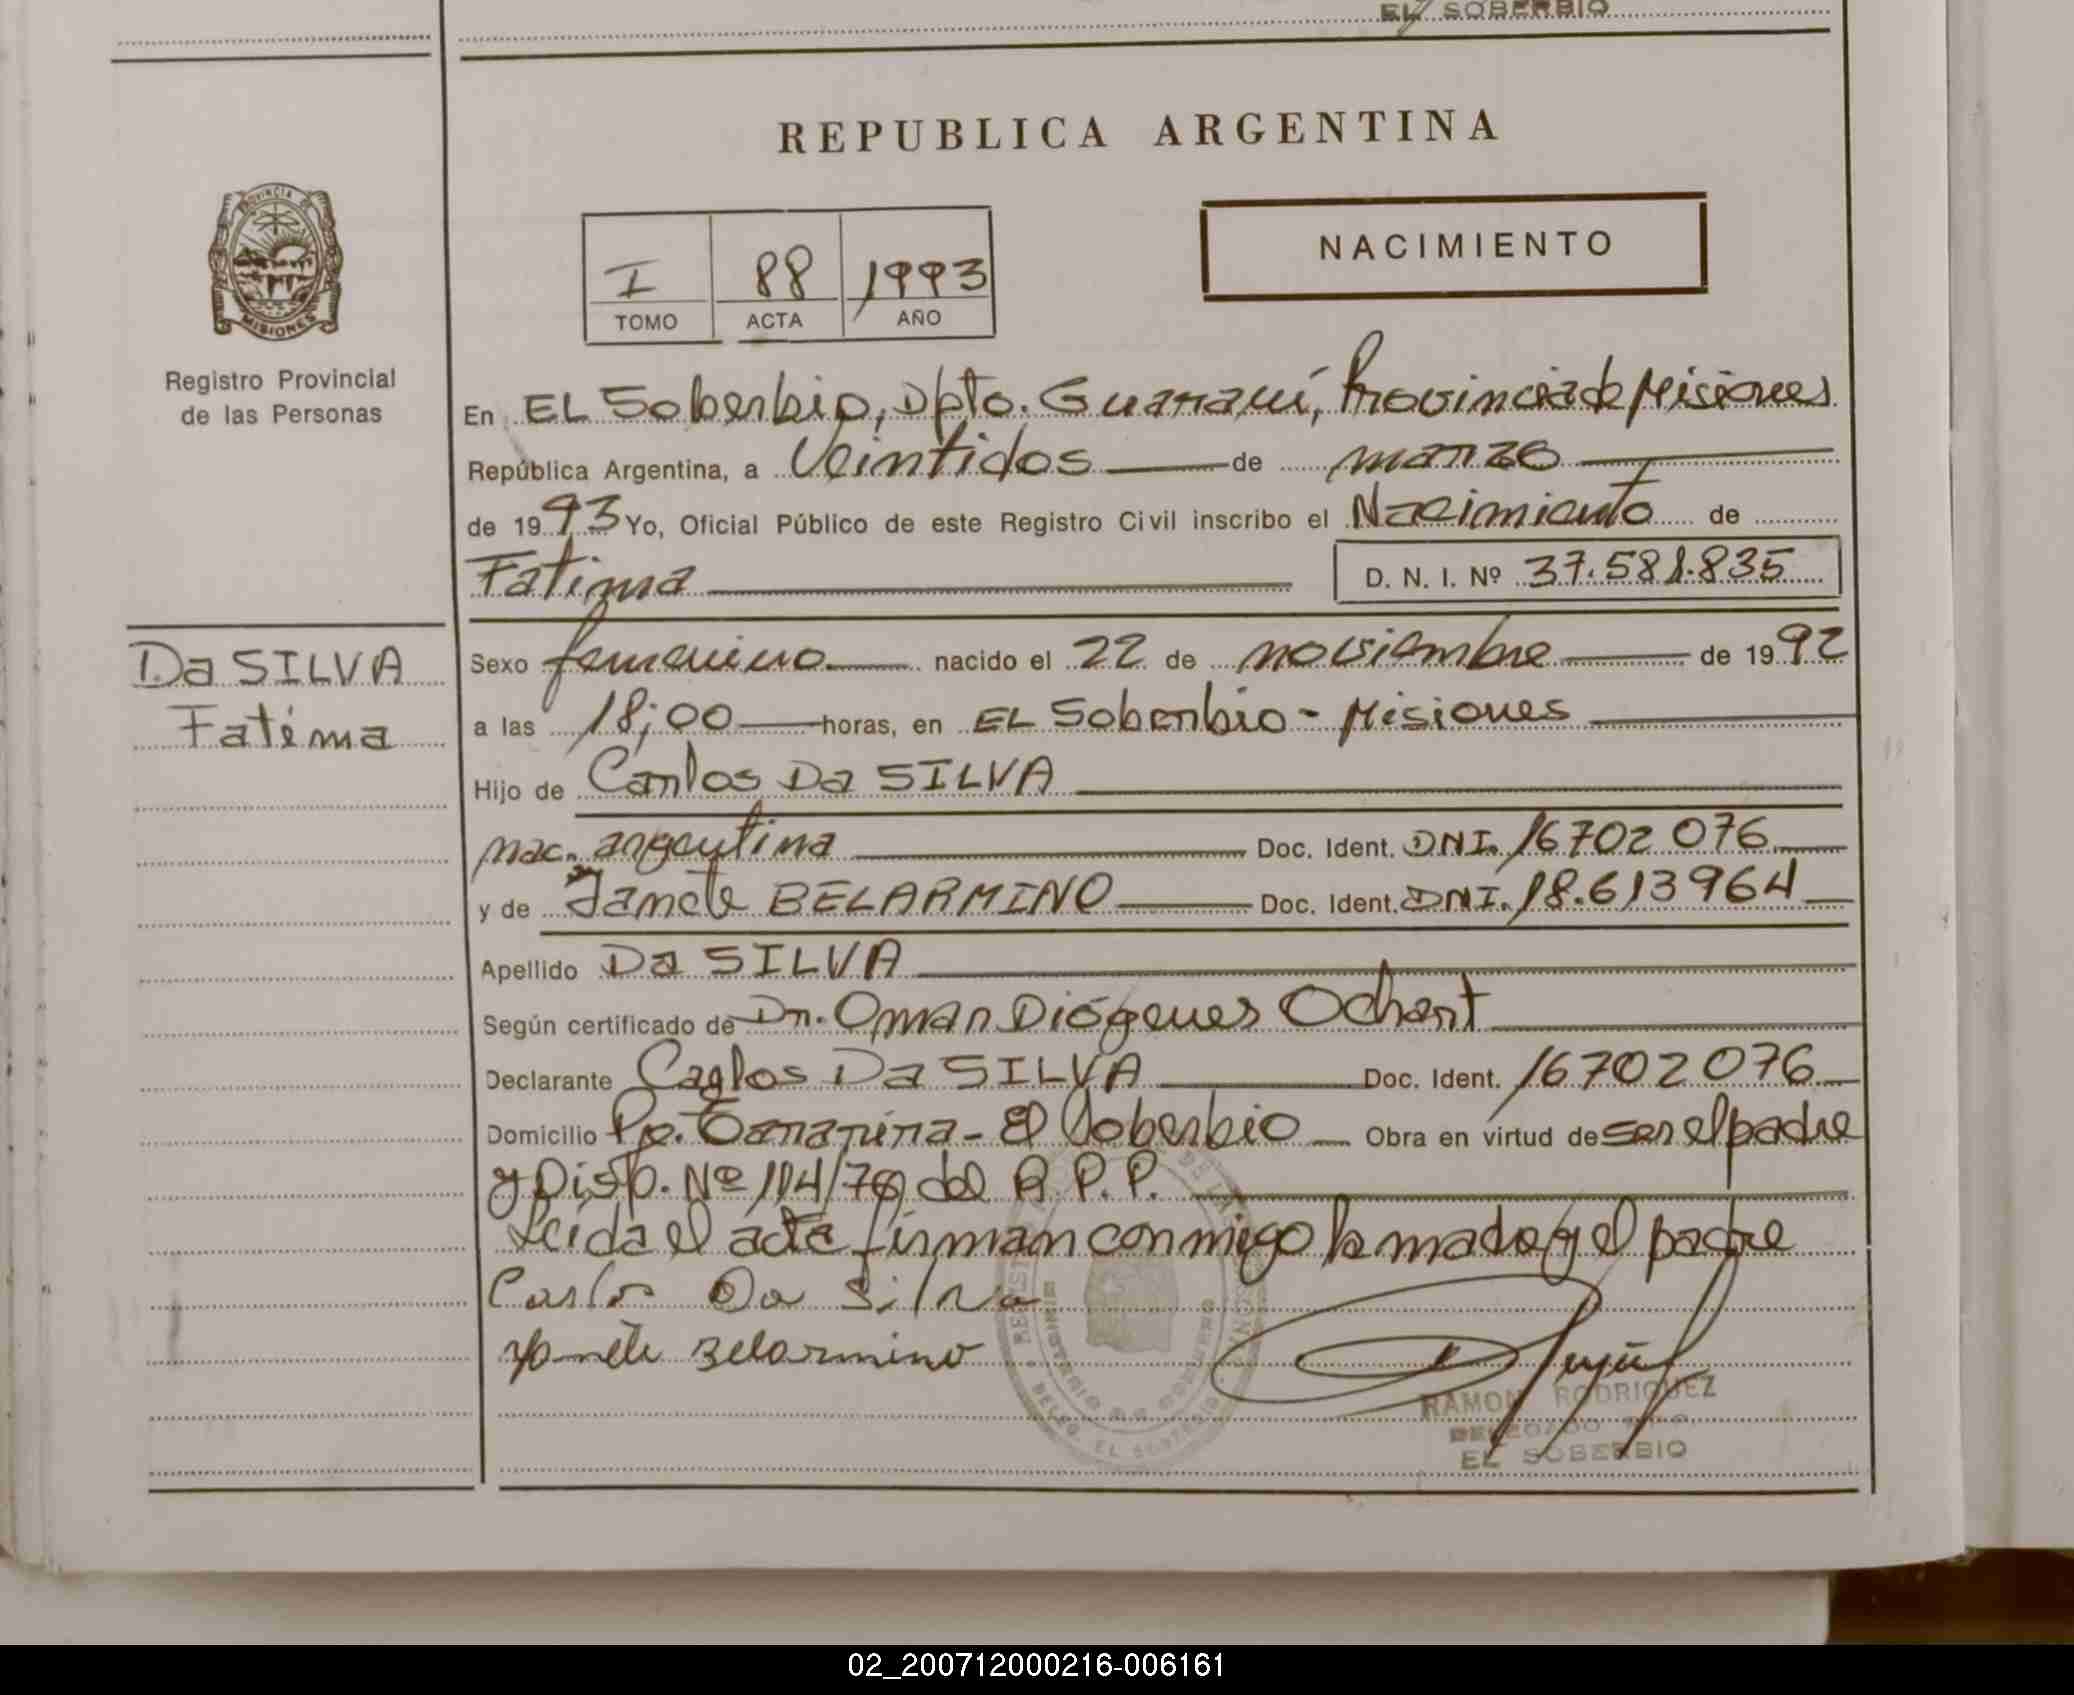 EL SOBERBIO
REPUBLICA ARGENTINA
PROVINCIA DE
MISIONES
Registro Provincial
de las Personas
I 88 1993
TOMO ACTA AÑO
NACIMIENTO
En EL Soberbio, Dpto. Guaraní, Provincia de Misiones
República Argentina, a Veintidos de marzo
de 1993 Yo, Oficial Público de este Registro Civil inscribo el Nacimiento de
Fatima D. N. I. Nº 37.581.835
Da SILVA
Fatima
Sexo femenino nacido el 22 de noviembre de 1992
a las 18;00 horas, en EL Soberbio - Misiones
Hijo de Carlos Da SILVA
nac. argentina Doc. Ident. DNI. 16702076
y de Janete BELARMINO Doc. Ident. DNI. 18.613964
Apellido Da SILVA
Según certificado de Dr. Omar Diógenes Ochart
Declarante Carlos Da SILVA Doc. Ident. 16702076
Domicilio El Soberbio Obra en virtud de ser el padre
y Disp. Nº del R.P.P.
Leida el acta firman conmigo la madre y el padre
Carlos Da Silva
Janete Belarmino
RAMON RODRIGUEZ
DELEGADO
EL SOBERBIO
02_200712000216-006161